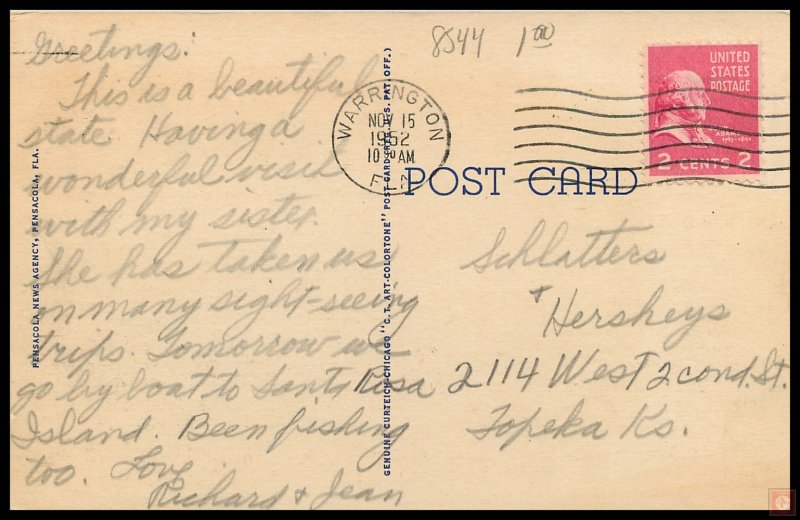 8544 1.00
Greetings:
This is a beautiful
state. Having a
wonderful visit
with my sister.
She has taken us
on many sight-seeing
trips. Tomorrow we
go by boat to Santa Rosa
Island. Been fishing
too. Love
Richard & Jean
PENSACOLA NEWS AGENCY, PENSACOLA, FLA.
GENUINE CURTEICH-CHICAGO "C.T. ART-COLORTONE" POST CARD (REG. U.S. PAT. OFF.)
WARRINGTON
NOV 15
1952
10 30 AM
FLA
UNITED
STATES
POSTAGE
ADAMS
1797-1801
2 CENTS 2
POST CARD
Schlatters
+
Hersheys
2114 West 2cond. St.
Topeka Ks.